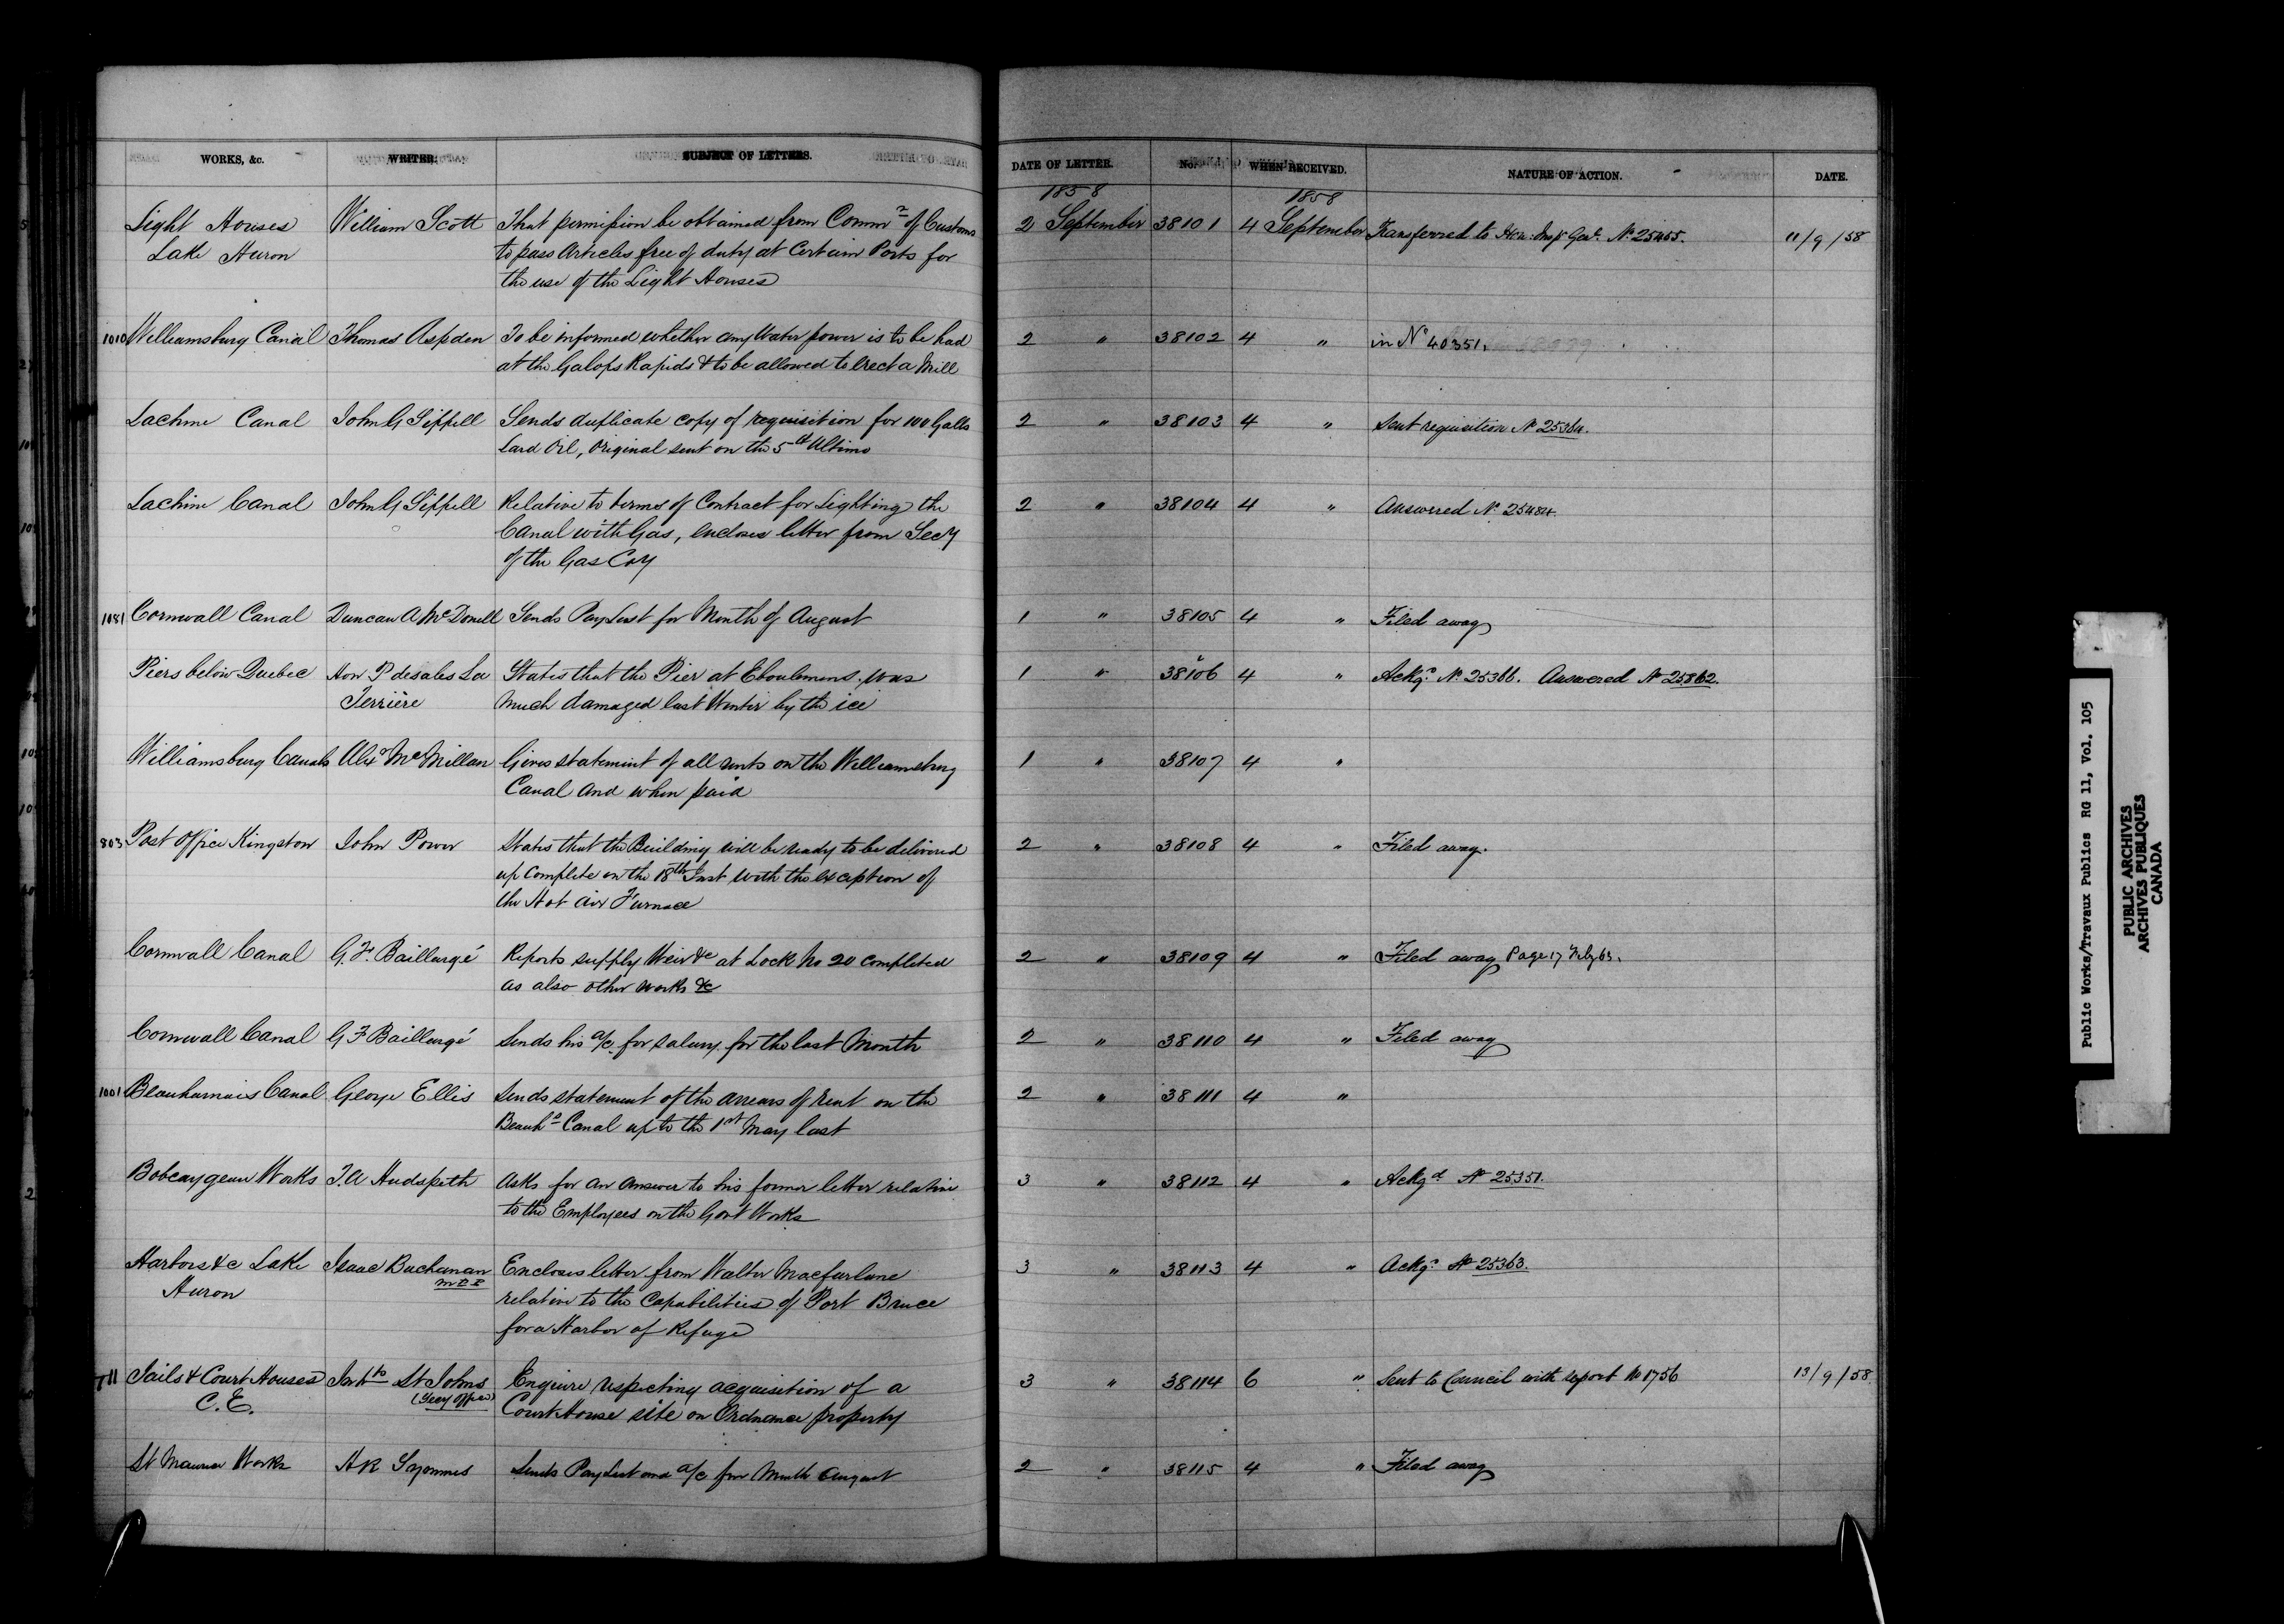 WORKS, &c. WRITER. SUBJECT OF LETTERS. DATE OF LETTER. No. WHEN RECEIVED. NATURE OF ACTION. DATE.
1858 1858
Light Houses William Scott That permission be obtained from Commr of Customs 2 September 38101 4 September Transferred to Hon: Insp. Genl. No 25455. 11/9/58
Lake Huron to pass Articles free of duty at Certain Ports for
the use of the Light Houses
1010 Williamsburg Canal Thomas Aspden To be informed whether any Water power is to be had 2 " 38102 4 " in No 40351.
at the Galops Rapids & to be allowed to erect a Mill
Lachine Canal John G Sippell Sends duplicate copy of requisition for 100 Galls 2 " 38103 4 " Sent requisition No 25364.
Lard Oil, Original sent on the 5th Ultimo
Lachine Canal John G Sippell Relative to terms of Contract for Lighting the 2 " 38104 4 " Answered No 25484
Canal with Gas, encloses letter from Secy
of the Gas Coy
1081 Cornwall Canal Duncan A McDonell Sends Pay List for Month of August 1 " 38105 4 " Filed away
Piers below Quebec Hon P de Sales La States that the Pier at Eboulemens was 1 " 38106 4 " Ackgd No. 25366. Answered No 25862.
Terrière much damaged last Winter by the ice
Williamsburg Canals Alexr McMillan Gives statement of all rents on the Williamsburg 1 " 38107 4 "
Canal and when paid
803 Post Office Kingston John Power States that the Building will be ready to be delivered 2 " 38108 4 " Filed away.
up Complete on the 18th Inst with the exception of
the Hot Air Furnace
Cornwall Canal G. F. Baillargé Reports supply Weir &c at Lock No 20 completed 2 " 38109 4 " Filed away Page 17
as also other works &c
Cornwall Canal G F Baillargé Sends his a/c for salary for the last Month 2 " 38110 4 " Filed away
1001 Beauharnois Canal George Ellis Sends statement of the arrears of rent on the 2 " 38111 4 "
Beauhs Canal up to the 1st May last
Bobcaygeon Works T. A Hudspeth Asks for an Answer to his former letter relative 3 " 38112 4 " Ackgd No 25351.
to the Employees on the Govt Works
Harbors &c Lake Isaac Buchanan Encloses letter from Walter Macfarlane 3 " 38113 4 " Ackgd No 25363.
Huron M P P relative to the Capabilities of Port Bruce
for a Harbor of Refuge
711 Jails & Court Houses St Johns Enquire respecting acquisition of a 3 " 38114 6 " Sent to Council with report No 1756 13/9/58
C. E. (Secy Office) Court House site on Ordnance property
St Maurice Works H R Symmes Sends Pay List and a/c for Month August 2 " 38115 4 " Filed away
Public Works/Travaux Publics RG 11, Vol. 105
PUBLIC ARCHIVES
ARCHIVES PUBLIQUES
CANADA